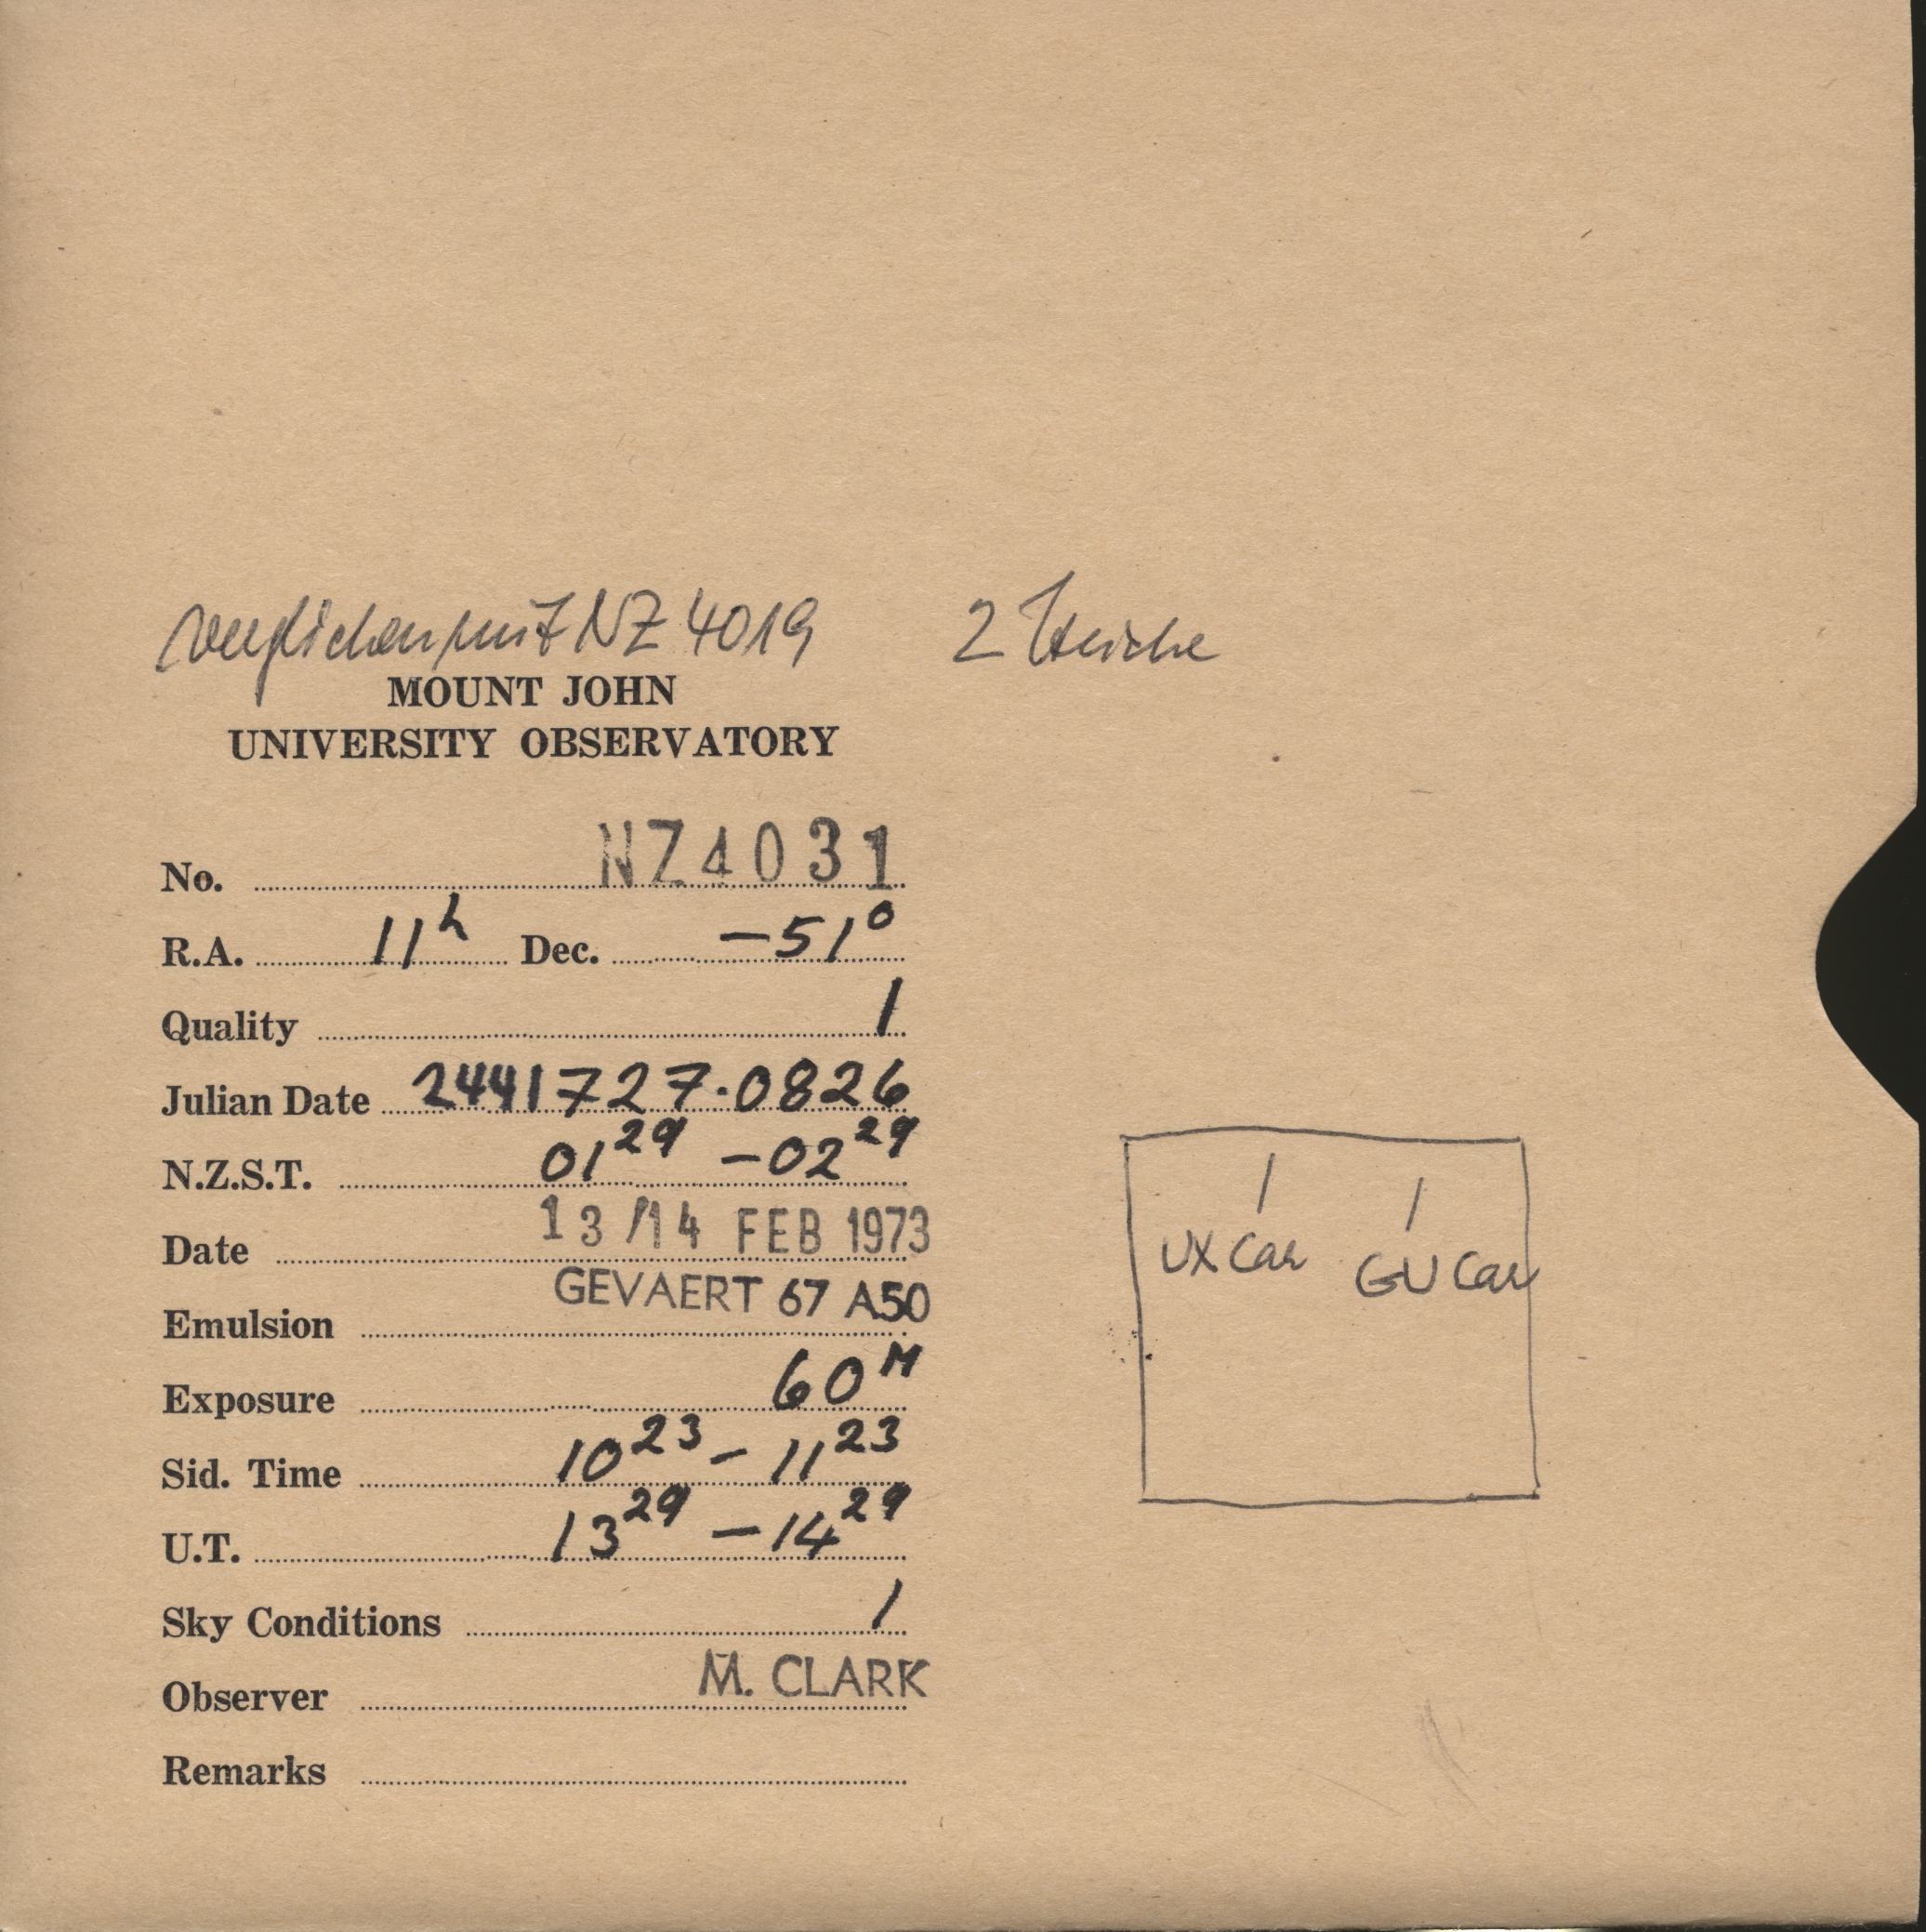 verglichen mit NZ 4019 2 Striche
MOUNT JOHN
UNIVERSITY OBSERVATORY
No. NZ4031
R.A. 11h Dec. -51°
Quality 1
Julian Date 2441727.0826
N.Z.S.T. 01 29 - 02 29
Date 13/14 FEB 1973
Emulsion GEVAERT 67 A50
Exposure 60 M
Sid. Time 10 23 - 11 23
U.T. 13 29 - 14 29
Sky Conditions 1
Observer M. CLARK
Remarks
UX Car
GU Car